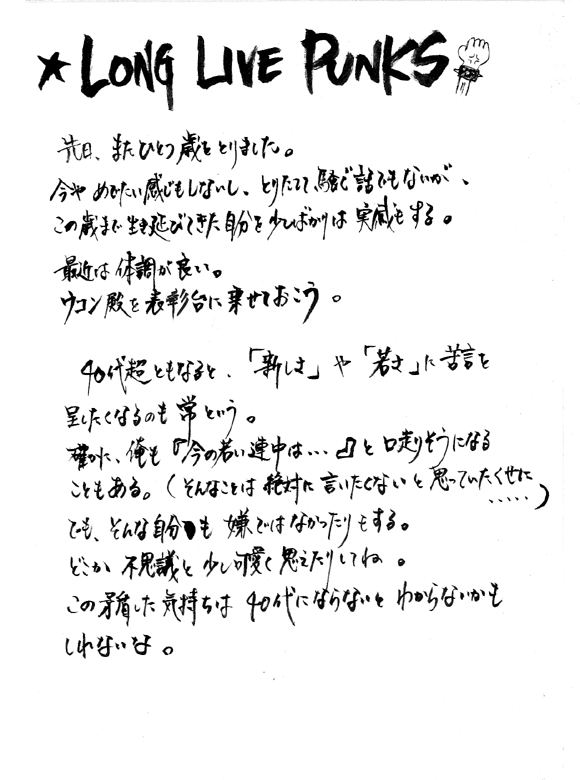 ★ LONG LIVE PUNKS
先日、またひとつ歳をとりました。
今や めでたい感じもしないし、とりたてて、騒ぐ話でもないが、
この歳まで生き延びてきた自分を少しばかりは 実感もする。
最近は体調が良い。
ウコン殿を表彰台に乗せておこう。
40代超ともなると、「新しさ」や「若さ」に苦言を
呈したくなるのも常という。
確かに、俺も『今の若い連中は…』と口走りそうになる
こともある。(そんなことは絶対に言いたくないと思っていたくせに
.....)
でも、そんな自分も 嫌ではなかったりもする。
どこか 不思議と少し可愛く思えたりしてね。
この矛盾した気持ちは 40代にならないと わからないかも
しれないな。